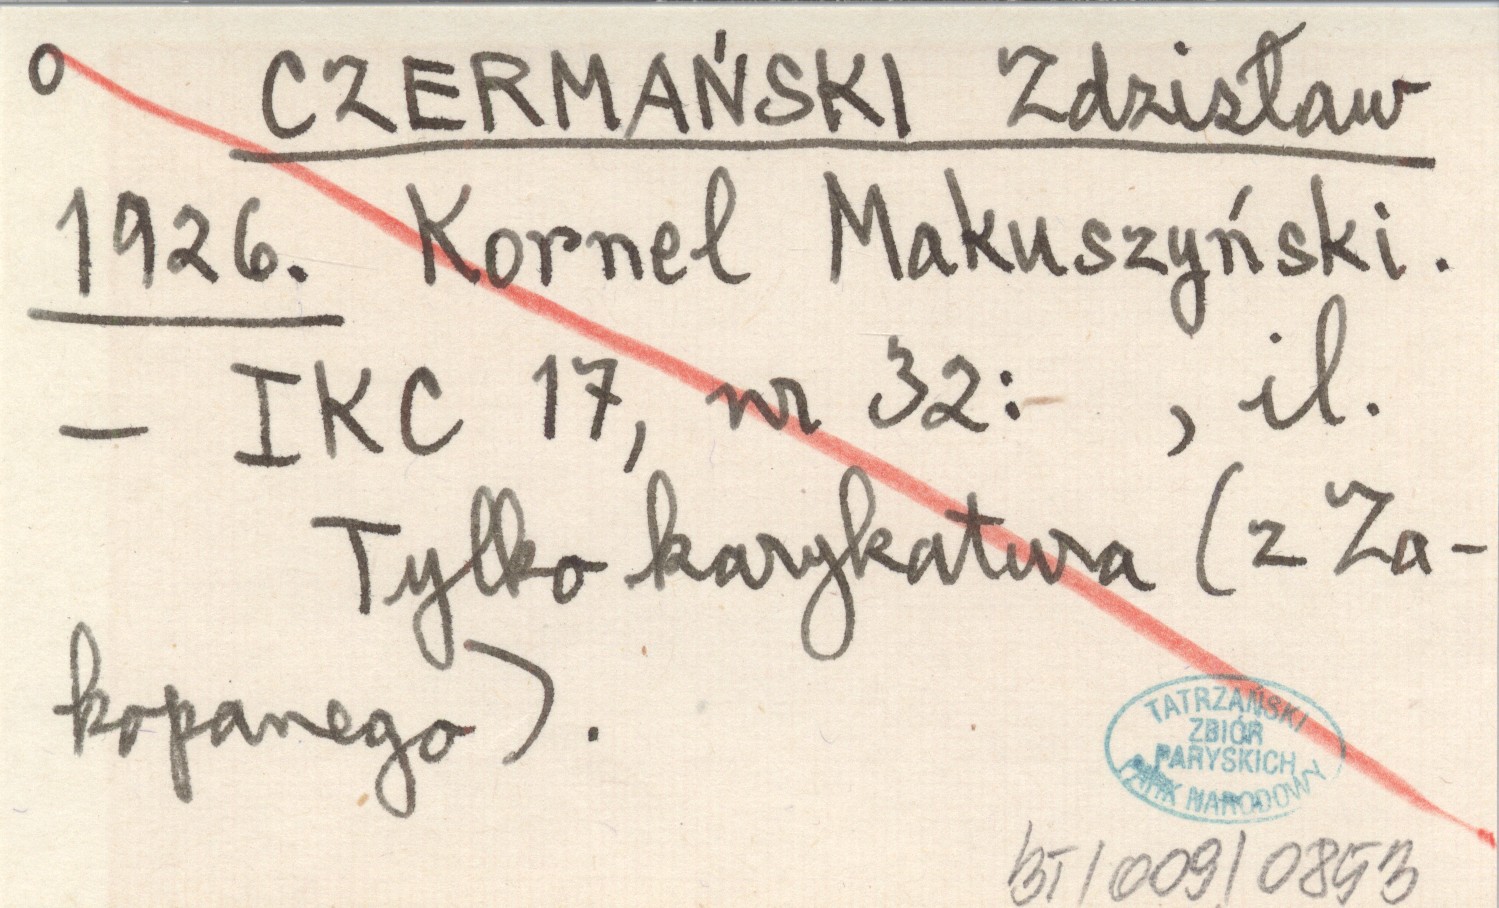 o CZERMAŃSKI Zdzisław
1926. Kornel Makuszyński.
– IKC 17, nr 32: , il.
Tylko karykatura (z Za-
kopanego).
TATRZAŃSKI
ZBIÓR
PARYSKICH
PARK NARODOWY
BT/009/0853